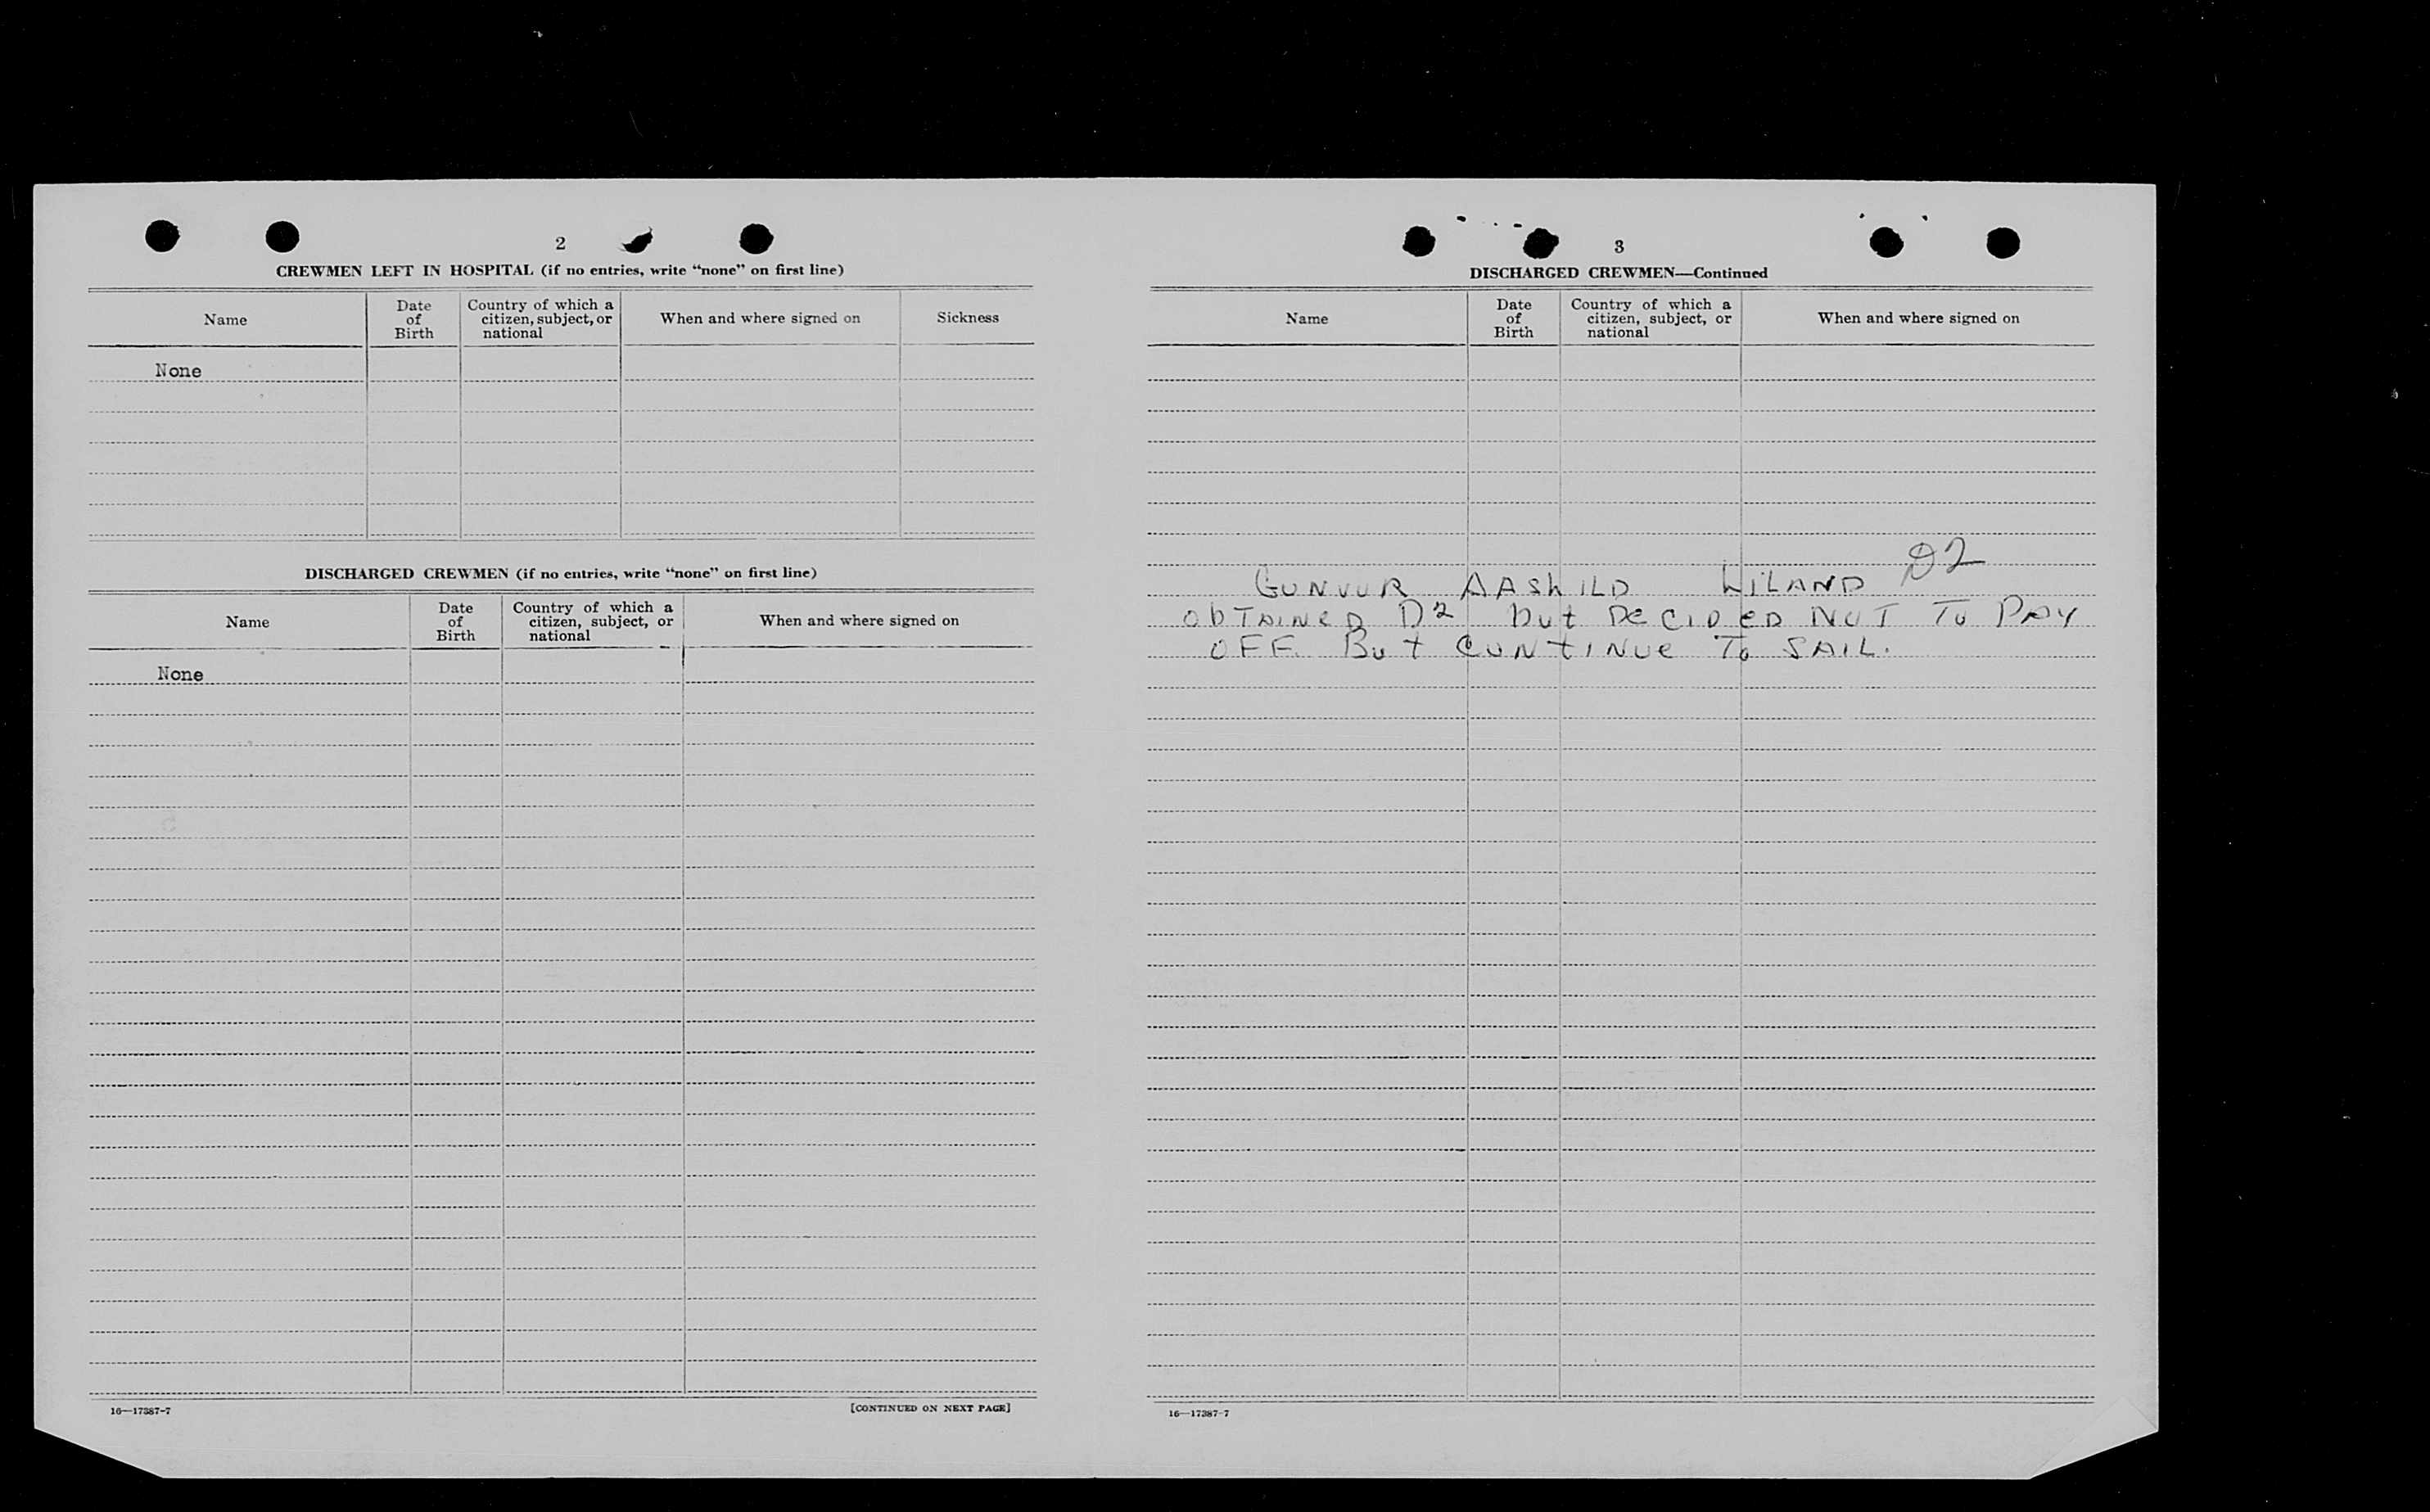 2
CREWMEN LEFT IN HOSPITAL (if no entries, write “none” on first line)
Name
Date of Birth
Country of which a citizen, subject, or national
When and where signed on
Sickness
None
DISCHARGED CREWMEN (if no entries, write “none” on first line)
Name
Date of Birth
Country of which a citizen, subject, or national
When and where signed on
None
16—17387-7
[CONTINUED ON NEXT PAGE]
3
DISCHARGED CREWMEN—Continued
Name
Date of Birth
Country of which a citizen, subject, or national
When and where signed on
GUNVOR AASHILD LILAND D2
OBTAINED D2 but DECIDED NOT TO PAY
OFF But CONTINUE To SAIL.
16—17387-7